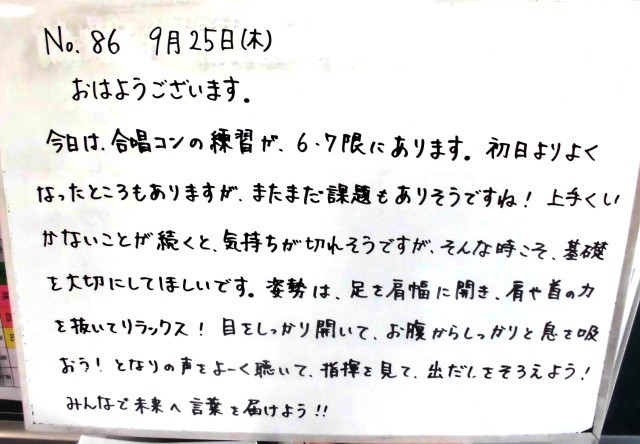 No. 86 9月25日(木)
おはようございます。
今日は、合唱コンの練習が、6・7限にあります。初日よりよく
なったところもありますが、まだまだ課題もありそうですね！上手くい
かないことが続くと、気持ちが切れそうですが、そんな時こそ、基礎
を大切にしてほしいです。姿勢は、足を肩幅に開き、肩や首の力
を抜いてリラックス！目をしっかり開いて、お腹からしっかりと息を吸
おう！となりの声をよーく聴いて、指揮を見て、出だしをそろえよう！
みんなで未来へ言葉を届けよう!!